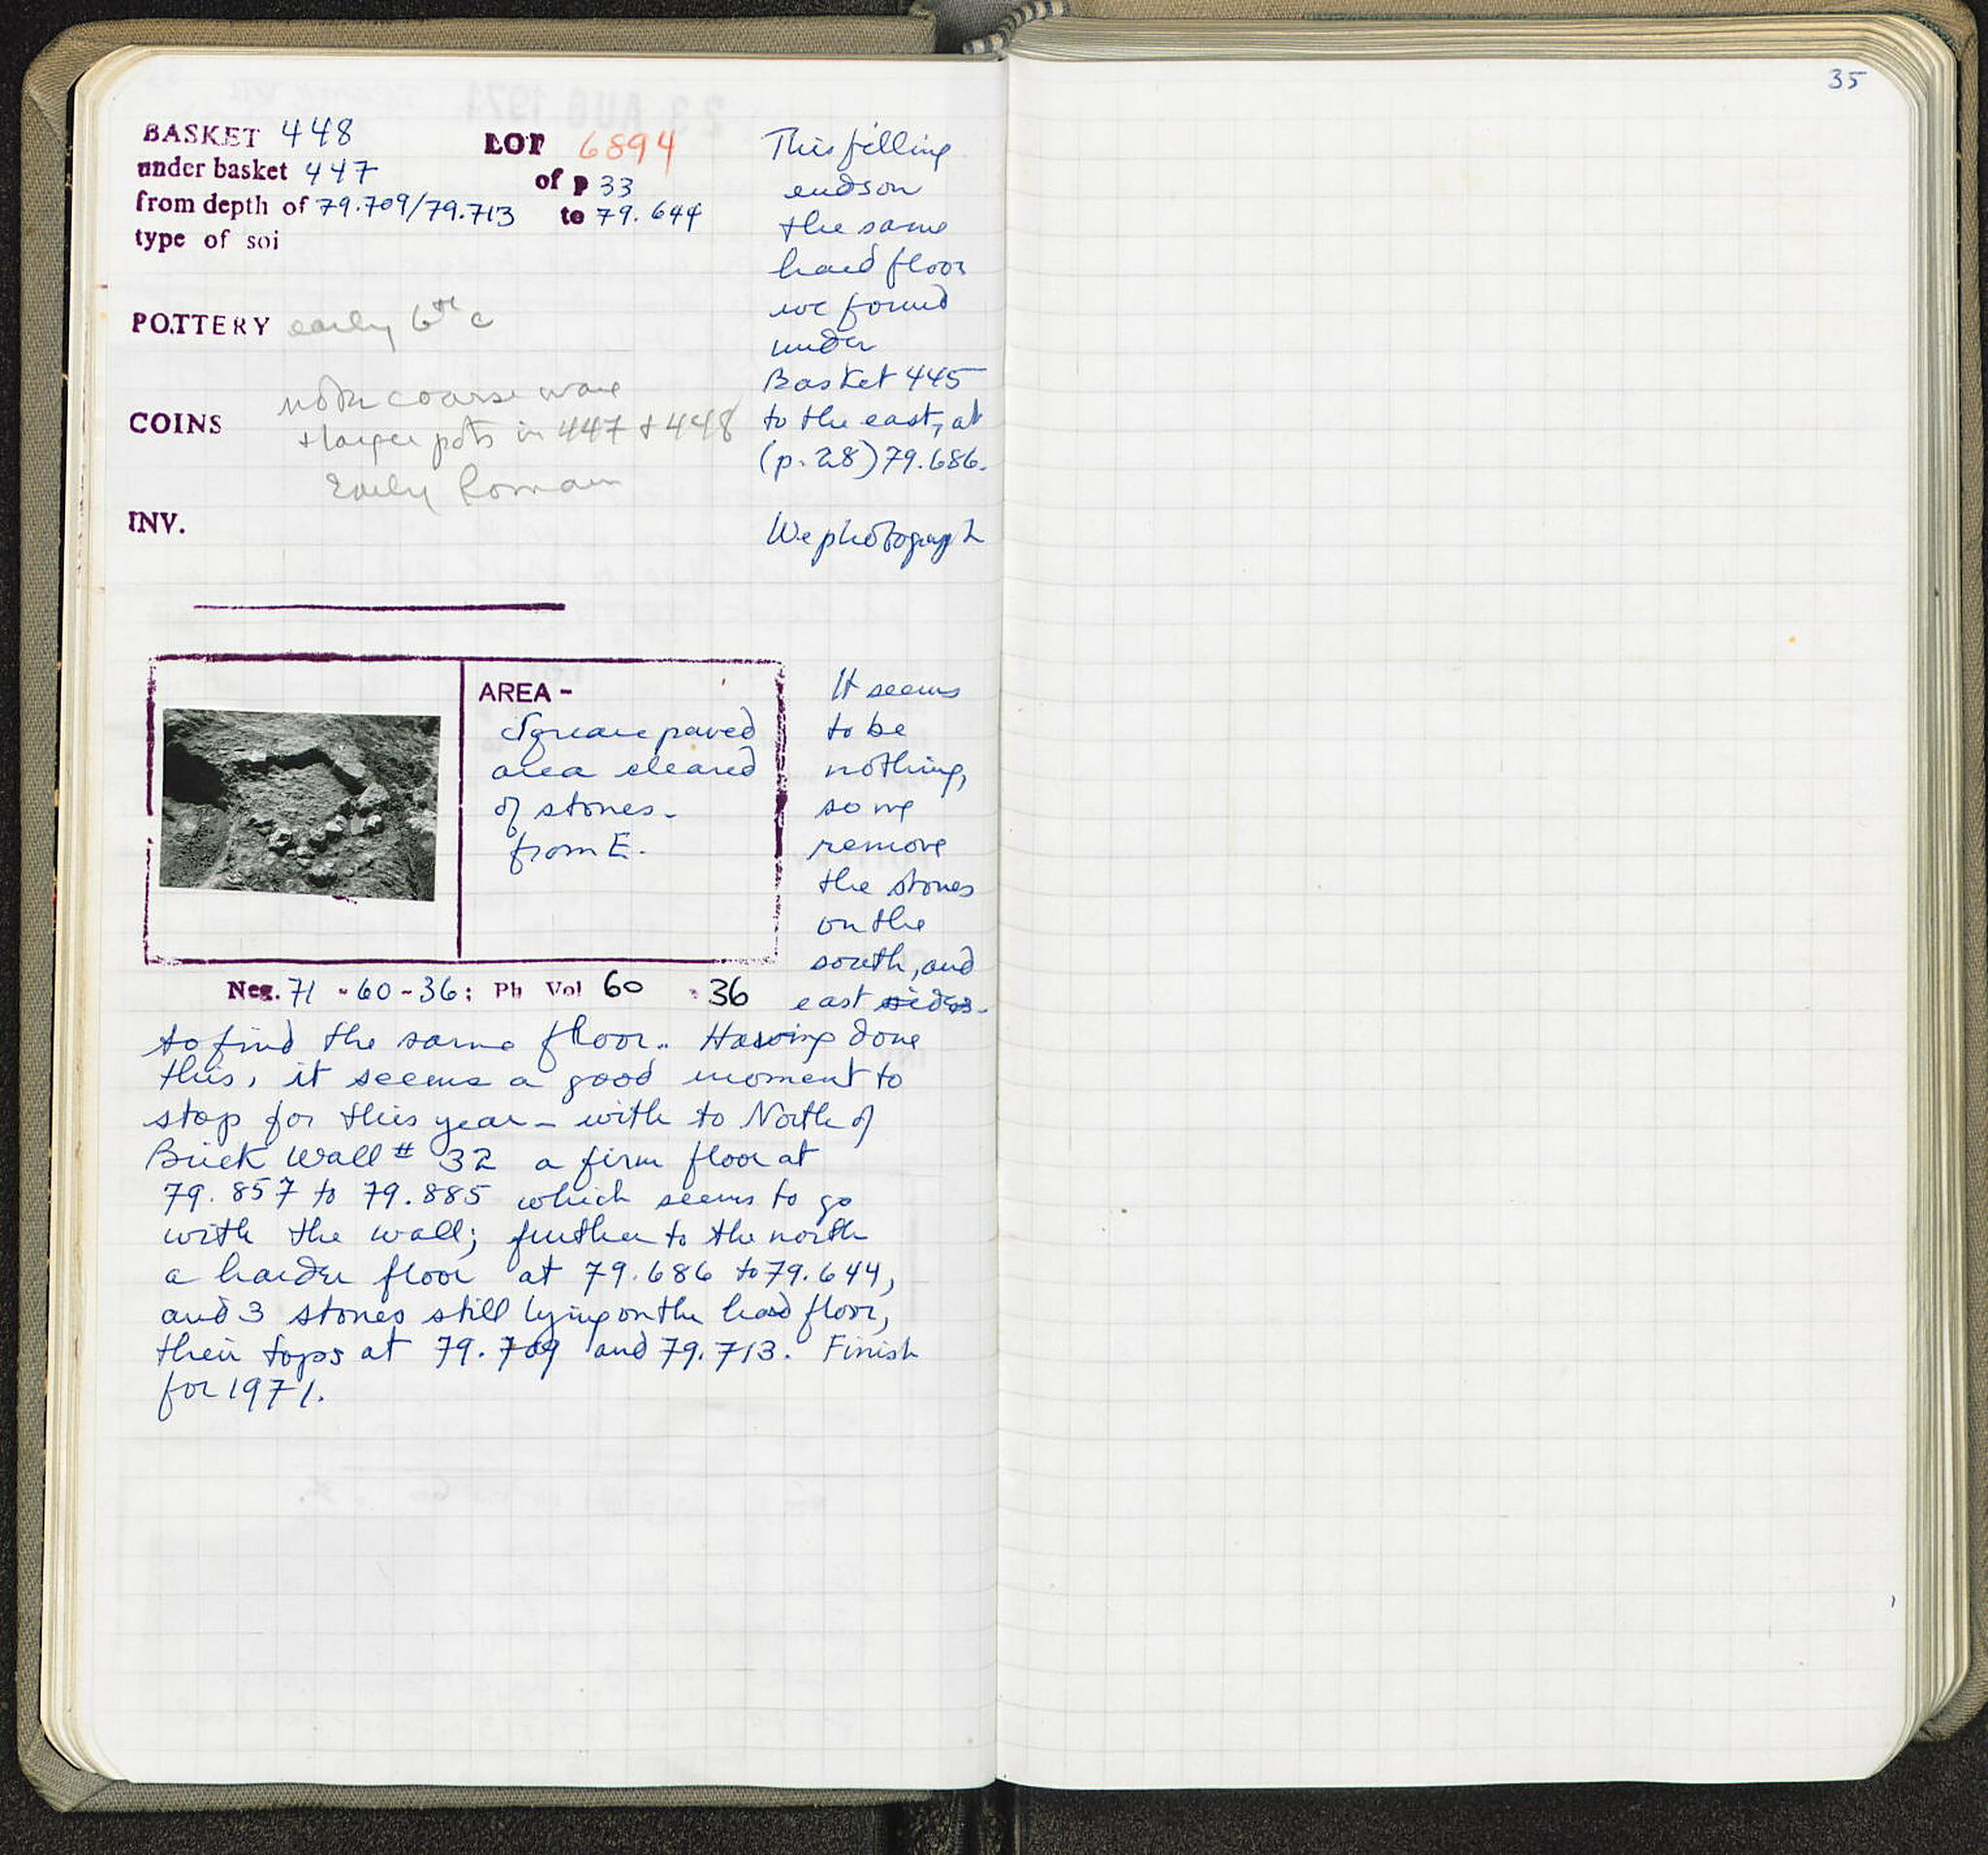 35
BASKET 448 LOT 6894
under basket 447 of p 33
from depth of 79.709/79.713 to 79.644
type of soi
POTTERY early 6th c
note coarse ware
COINS + larger pots in 447 + 448
Early Roman
INV.
This filling
ends on
the same
hard floor
we found
under
Basket 445
to the east, at
(p. 28) 79.686.
We photograph
AREA -
Square paved
area cleared
of stones.
from E.
Neg. 71 - 60 - 36; Ph Vol 60 . 36
It seems
to be
nothing,
so we
remove
the stones
on the
south, and
east sides.
to find the same floor. Having done
this, it seems a good moment to
stop for this year - with to North of
Brick Wall # 32 a firm floor at
79.857 to 79.885 which seems to go
with the wall; further to the north
a harder floor at 79.686 to 79.644,
and 3 stones still lying on the hard floor,
their tops at 79.709 and 79.713. Finish
for 1971.